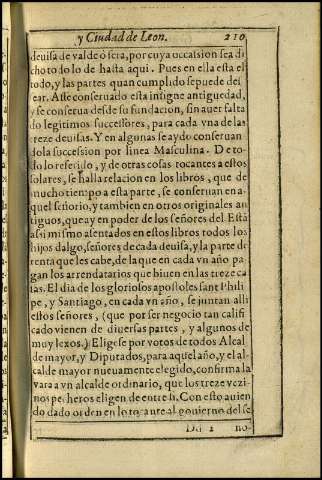 y Ciudad de Leon. 210
deuisa de valde ósera, por cuya occassion se a di
cho todo lo de hasta aqui. Pues en ella esta el
todo, y las partes quan cumplido se puede des
sear. Asse conseruado esta insigne antiguedad,
y se conserua desde su fundacion, sin auer falta
do legitimos successores, para cada vna de las
treze deuisas. Y en algunas se aydo conseruan
do la succession por linea Masculina. De to-
do lo referido, y de otras cosas tocantes a estos
solares, se halla relacion en los libros, que de
mucho tiempo a esta parte, se conseruan en a-
quel señorio, y tambien en otros originales an
tiguos, que ay en poder de los señores del. Està
assi mismo asentados en estos libros todos los
hijos dalgo, señores de cada deuisa, y la parte de
renta que les cabe, de la que en cada vn año pa
gan los arrendatarios que biuen en las treze ca
sas. El dia de los gloriosos apostoles sant Phili
pe, y Santiago, en cada vn año, se juntan alli
estos señores, (que por ser negocio tan califi
cado vienen de diuersas partes, y algunos de
muy lexos.) Eligese por votos de todos Alcal
de mayor, y Diputados, para aquel año, y el al-
calde mayor nueuamente elegido, confirma la
vara a vn alcalde ordinario, que los treze vezi-
nos pecheros eligen de entre si. Con esto auien
do dado orden en lo tocante al gouierno del se
Dd 2 no-